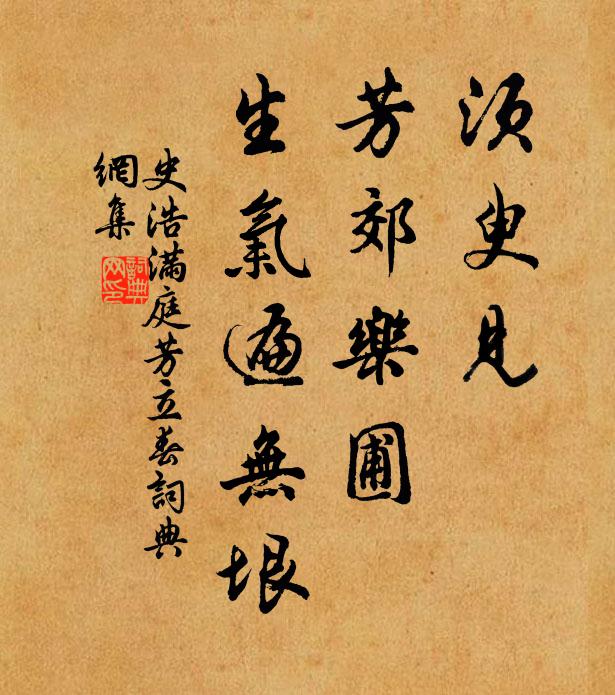 須臾見
芳郊樂圃
生氣遍無垠
史浩滿庭芳立春詞典
網集
詞典
网印